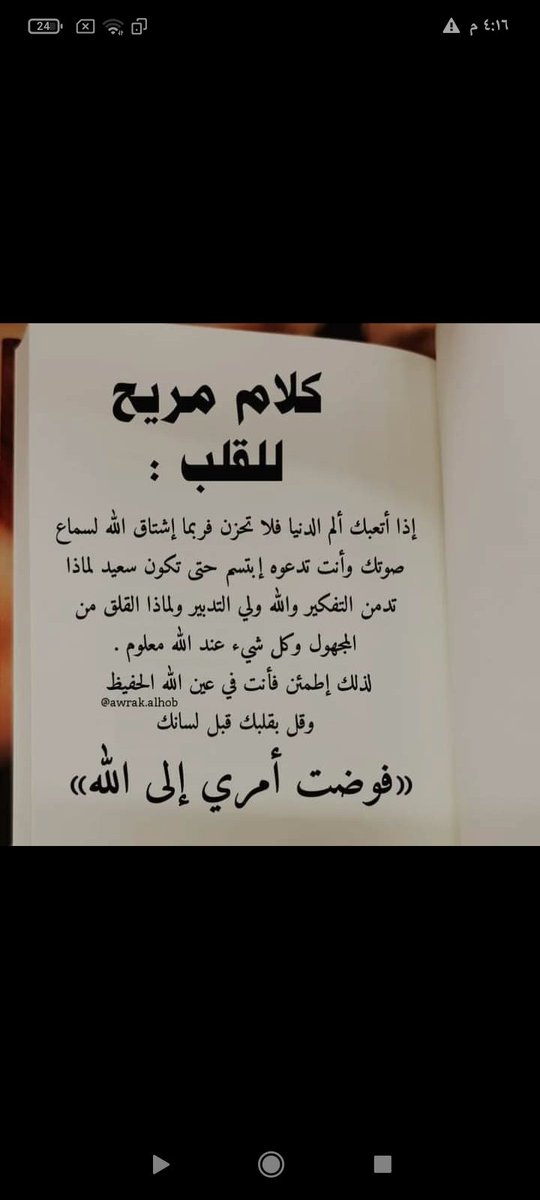 24
٤:١٦ م
كلام مريح
للقلب :
إذا أتعبك ألم الدنيا فلا تحزن فربما إشتاق الله لسماع
صوتك وأنت تدعوه إبتسم حتى تكون سعيد لماذا
تدمن التفكير والله ولي التدبير ولماذا القلق من
المجهول وكل شيء عند الله معلوم .
لذلك إطمئن فأنت في عين الله الحفيظ
@awrak.alhob
وقل بقلبك قبل لسانك
«فوضت أمري إلى الله»